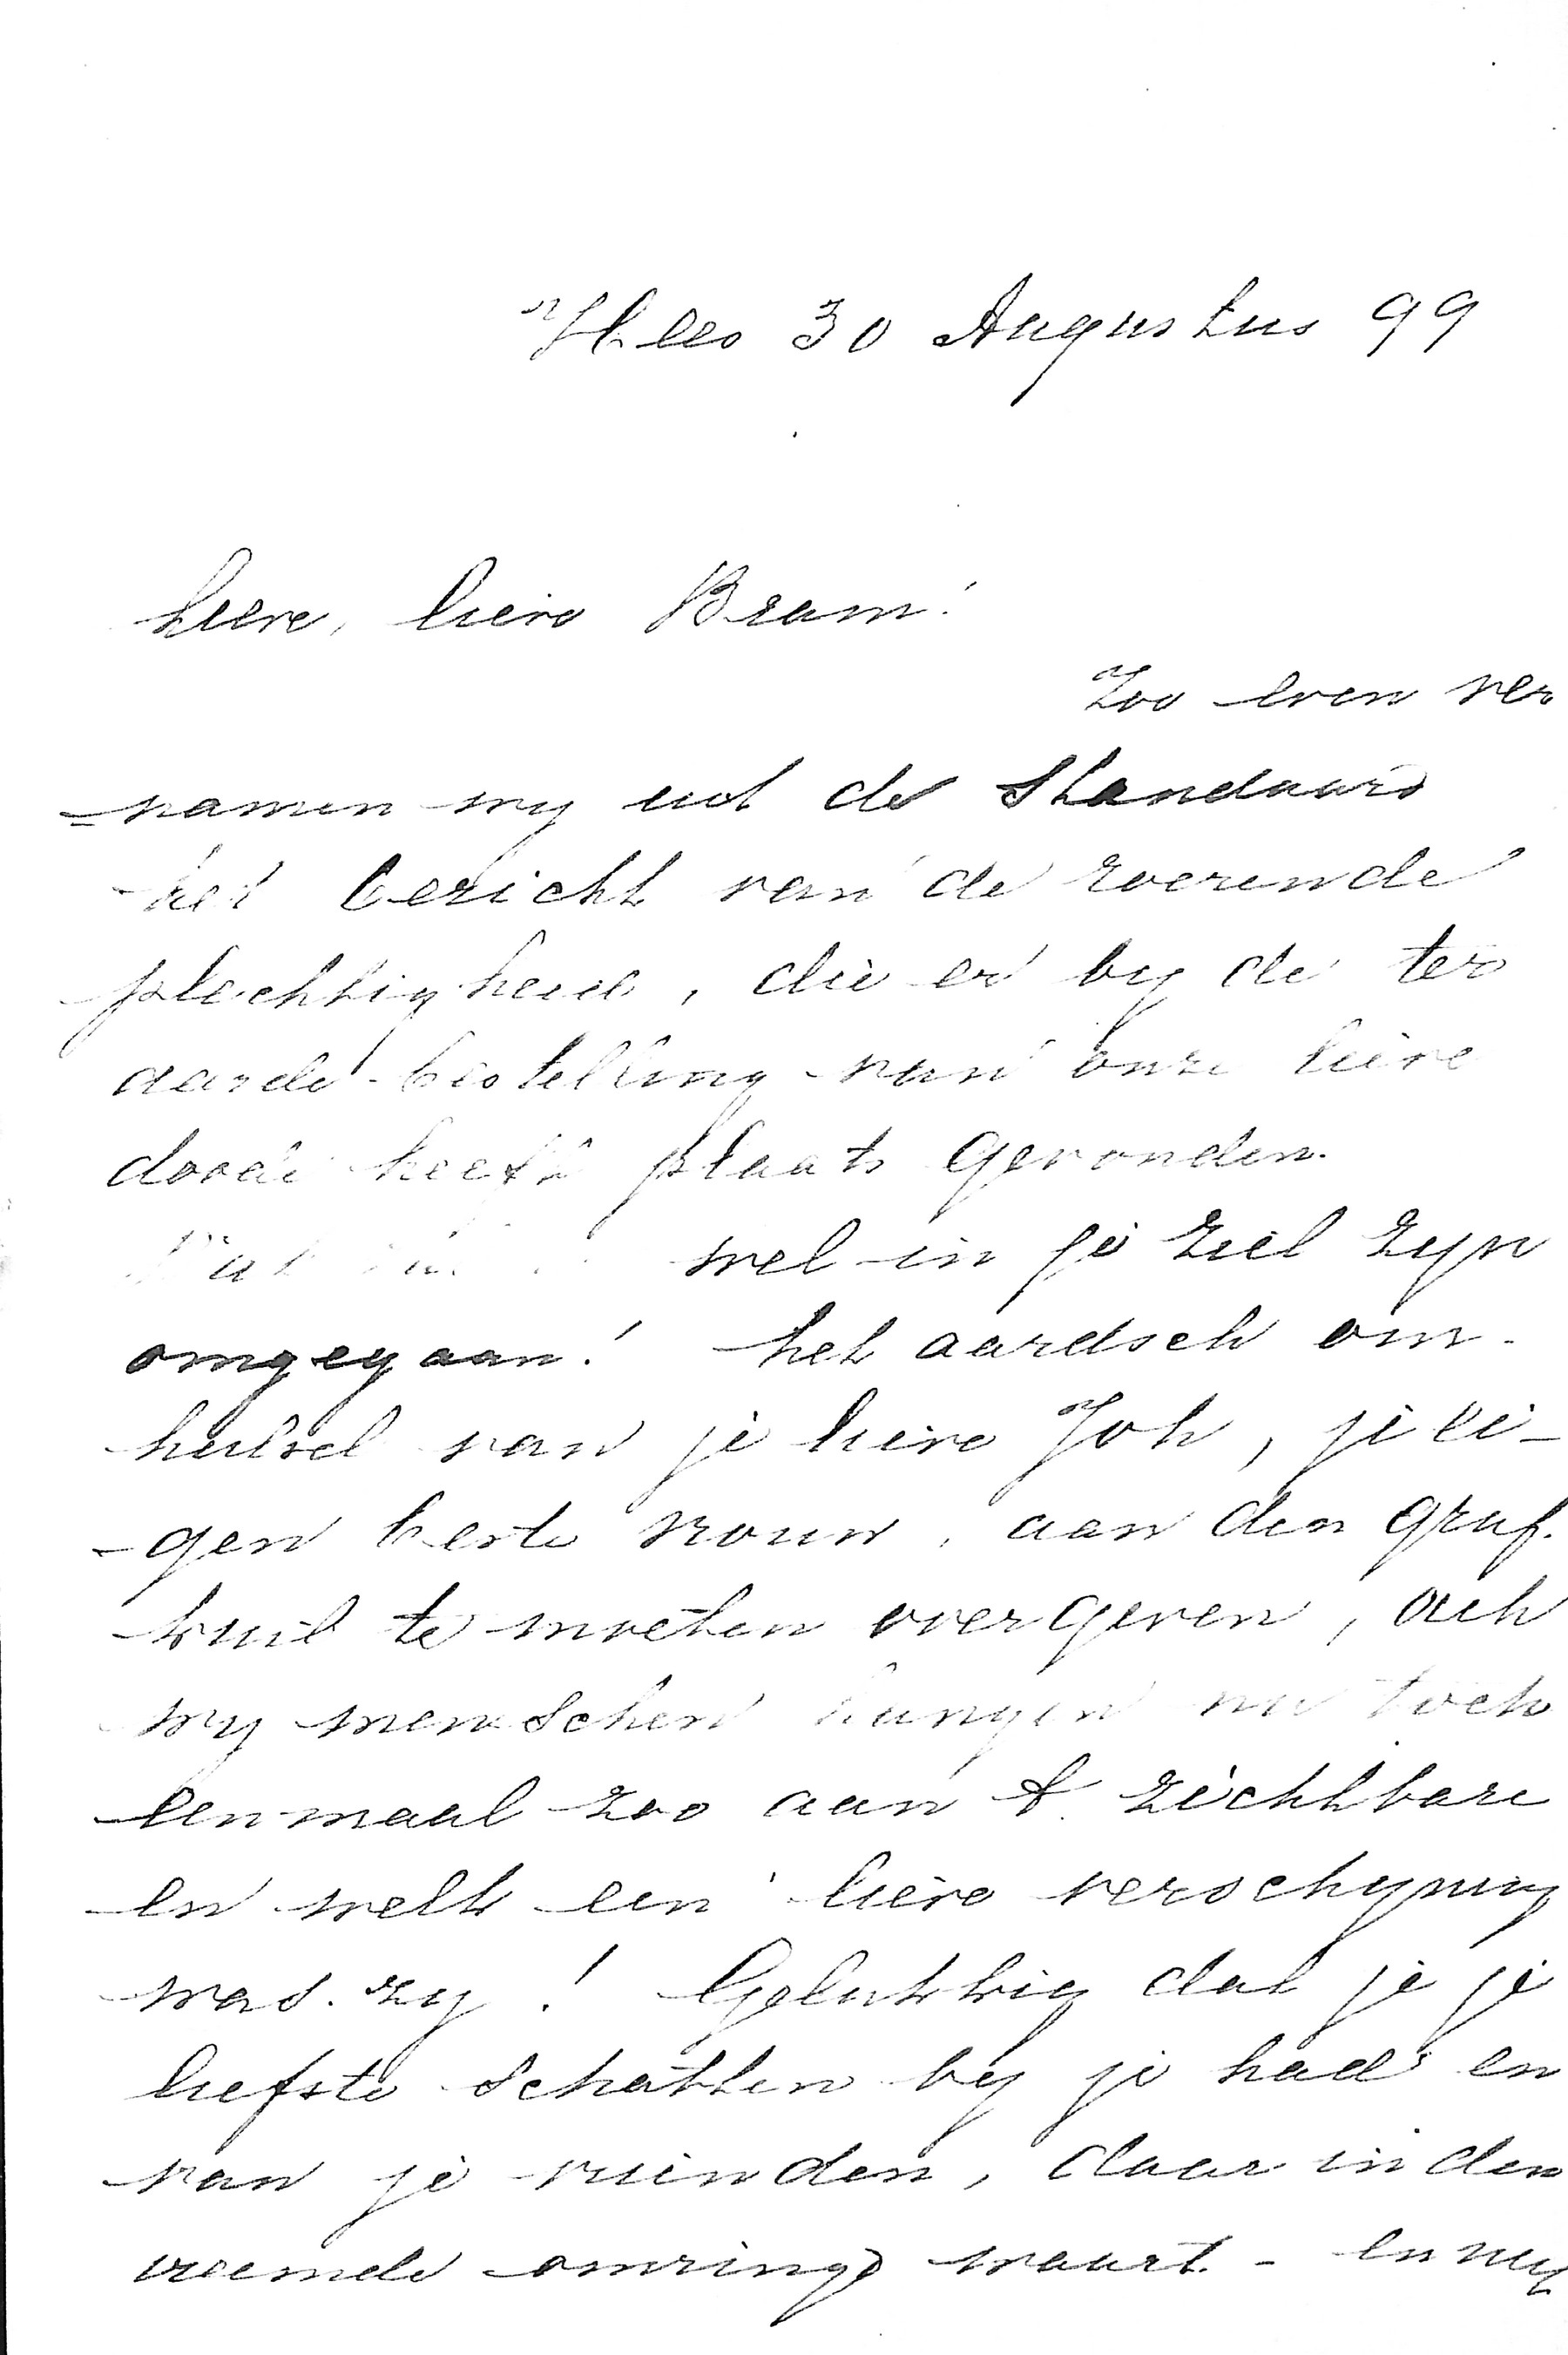 Hees 30 Augustus 99
Lieve, lieve Bram!
Zoo even ver
=namen wy uit de Standaard
het bericht van de roerende
plechtigheid, die er by de ter
aarde bestelling van onze lieve
doode heeft plaats gevonden.
wel in je ziel zyn
omgegaan! het aardsch om-
hulsel van je lieve Joh, je ei-
-gen beste vrouw, aan den graf-
kuil te moeten overgeven, och
wy menschen hangen nu toch
eenmaal zoo aan t zichtbare
en welk een lieve verschyning
was zy! Gelukkig dat je je
liefste schatten by je had en
van je vrienden, daar in den
vreemde omringd waart. - En wy